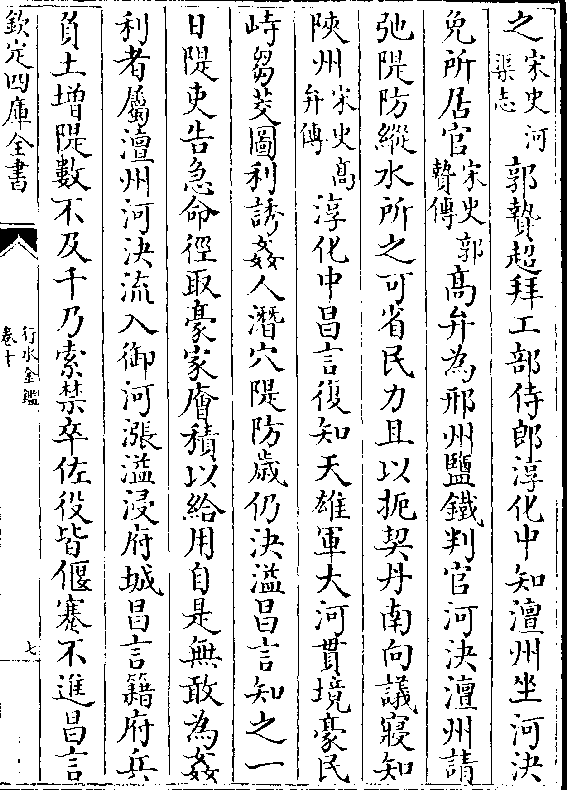 之宋史河渠志郭贄超拜工部侍郎淳化中知澶州坐河決
免所居官宋史郭贄傳高弁為邢州鹽鐵判官河決澶州請
弛隄防縱水所之可省民力且以扼契丹南向議寢知
陜州宋史高弁傳淳化中昌言復知天雄軍大河貫境豪民
峙芻茭圖利誘姦人潛穴隄防歲仍決溢昌言知之一
日隄吏告急命徑取豪家廥積以給用自是無敢為姦
利者屬澶州河決流入御河漲溢浸府城昌言籍府兵
負土增隄數不及千乃索禁卒佐役皆偃蹇不進昌言
欽定四庫全書
行水金鑑
卷十
七